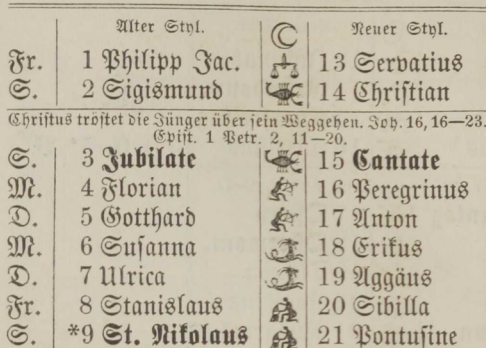 Alter Styl. Neuer Styl.
Fr. 1 Philipp Jac. 13 Servatius
S. 2 Sigismund 14 Christian
Christus tröstet die Jünger über sein Weggehen. Joh. 16, 16—23.
Epist. 1 Petr. 2, 11—20.
S. 3 Jubilate 15 Cantate
M. 4 Florian 16 Peregrinus
D. 5 Gotthard 17 Anton
M. 6 Susanna 18 Erikus
D. 7 Ulrica 19 Aggäus
Fr. 8 Stanislaus 20 Sibilla
S. *9 St. Nikolaus 21 Pontusine